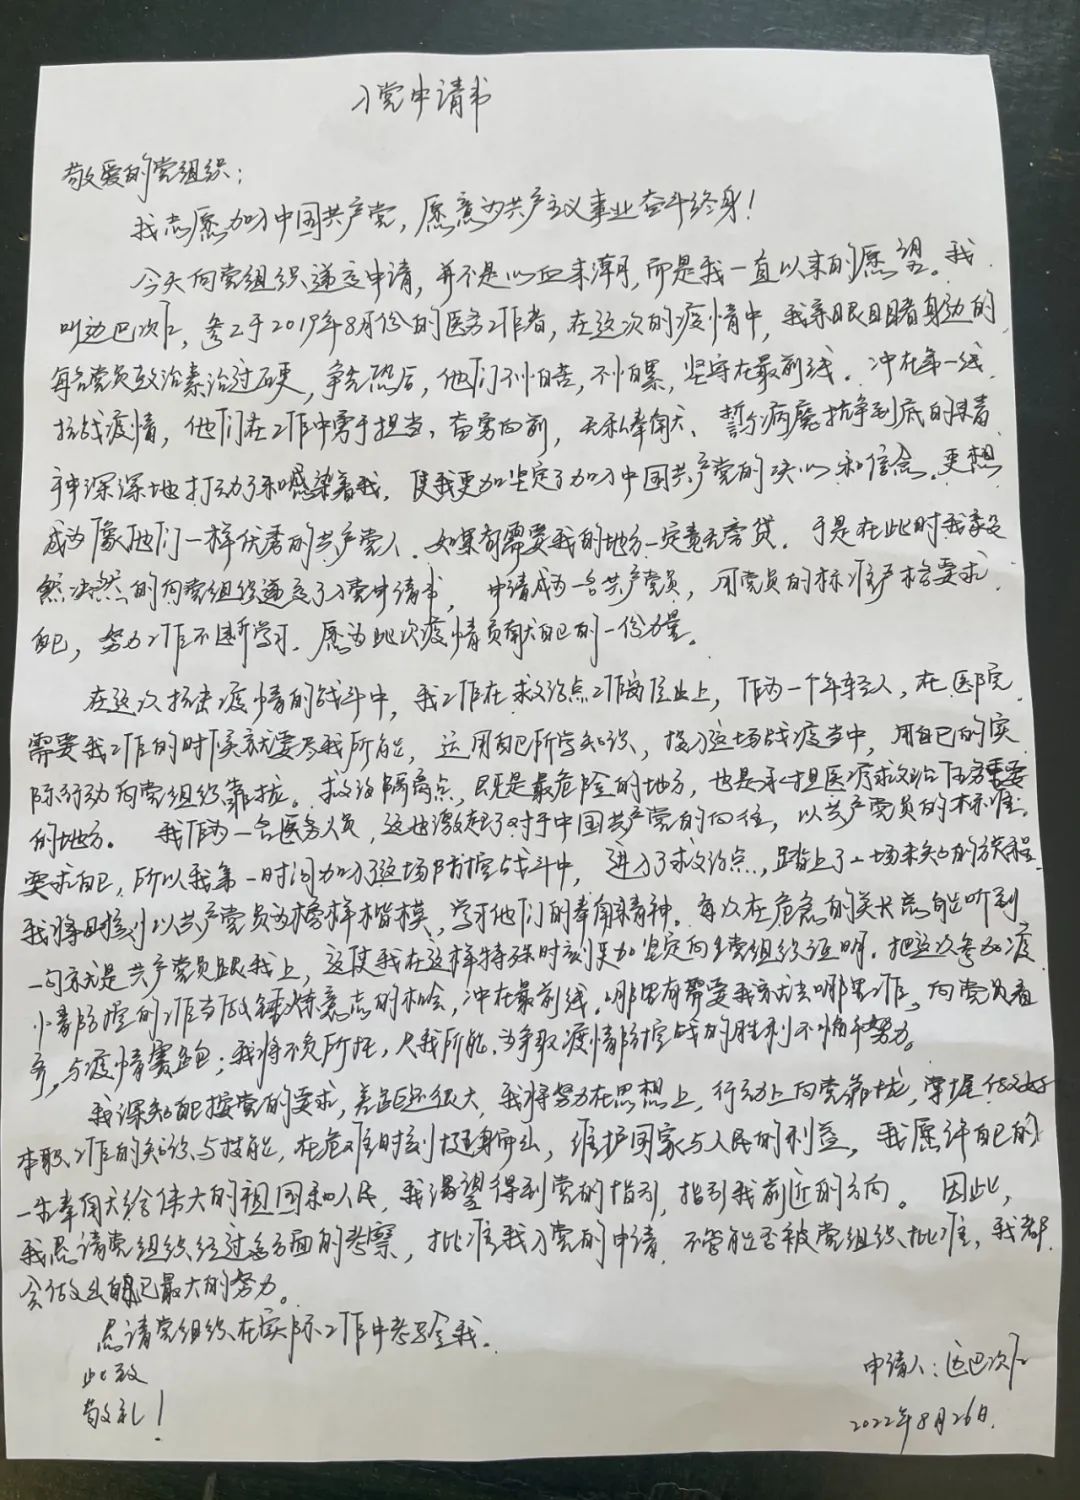 入党申请书
敬爱的党组织：
我志愿加入中国共产党，愿意为共产主义事业奋斗终身！
今天向党组织递交申请，并不是心血来潮，而是我一直以来的愿望。我
叫边巴次仁，参工于2019年8月份的医务工作者，在这次的疫情中，我亲眼目睹身边的
每名党员政治素治过硬，争先恐后，他们不怕苦，不怕累，坚守在最前线。冲在第一线
抗战疫情，他们在工作中勇于担当，奋勇向前，无私奉献、誓与病魔抗争到底的精
神深深地打动了和感染着我，使我更加坚定了加入中国共产党的决心和信念，更想
成为像他们一样优秀的共产党人，如果有需要我的地方一定责无旁贷，于是在此时我毫
然决然的向党组织递交了入党申请书，申请成为一名共产党员，用党员的标准严格要求
自己，努力工作不断学习，愿为此次疫情贡献自己的一份力量。
在这次抗击疫情的战斗中，我工作在救治点工作岗位上，作为一个年轻人，在医院
需要我工作的时候就要尽我所能，运用自己所学知识，投入这场战疫当中，用自己的实
际行动向党组织靠拢。救治隔离点，既是最危险的地方，也是承担医疗救治任务重要
的地方。我作为一名医务人员，这也激起了对于中国共产党的向往，以共产党员的标准
要求自己，所以我第一时间加入了这场防控战斗中，进入了救治点，踏上了一场未知的旅程
我将时刻以共产党员为榜样楷模，学习他们的奉献精神，每次在危急的关头总能听到
一句就是共产党员跟我上，这使我在这样特殊时刻更加坚定向党组织证明，把这次参加疫
情防控的工作当做锤炼意志的机会，冲在最前线，哪里有需要我就去哪里工作，向党员看
齐，与疫情赛跑；我将不负所托，尽我所能，为争取疫情防控战的胜利不懈努力。
我深知自己按党的要求，差距还很大，我将努力在思想上，行动上向党靠拢，掌握做好
本职工作的知识与技能，在危难时刻挺身而出，维护国家与人民的利益，我愿许自己的
一生奉献给伟大的祖国和人民，我渴望得到党的指引，指引我前进的方向。因此，
我恳请党组织经过多方面的考察，批准我入党的申请，不管能否被党组织批准，我都
会做出自己最大的努力。
恳请党组织在实际工作中考验我。
此致
敬礼！
申请人：边巴次仁
2022年8月26日